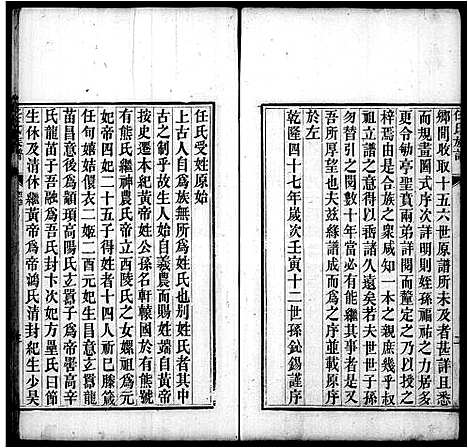 任氏族譜
鄉間收取十五六世原譜所未及者甚詳且悉
而規畫圖式序次詳明則姪孫福祐之力居多
更令勄亭聖賓兩弟詳閱而釐定之乃以授之
梓焉由是合族之衆咸知一本之親庶幾
祖立譜之意於以流傳久遠矣若夫世世子孫
勿替引之閱數十年當必有能繼其事者予小
子序其所望也夫兹緣譜成而為之序並載原序
於左
乾隆四十七年歲次壬寅十二世孫鈊錫謹序
任氏受姓原始
上古人自為族無所為姓氏也別姓氏者其中
古之制乎故生人始自羲農而賜姓端自黃帝
按史遷本紀黃帝姓公孫名軒轅國於有熊號
有熊氏繼神農氏帝立西陵氏之女嫘祖為元
妃帝四妃二十五子得姓者十四人祁己滕葴
任句嬉姞儇衣二姬二酉元妃生昌意立囂龍
苗昌意後為顓頊高陽氏立囂子為高辛帝嚳
氏龍苗于吾融為吾氏封卞次妃方壘氏曰節
生休及清休繼黃帝為帝鴻氏清封紀生少昊